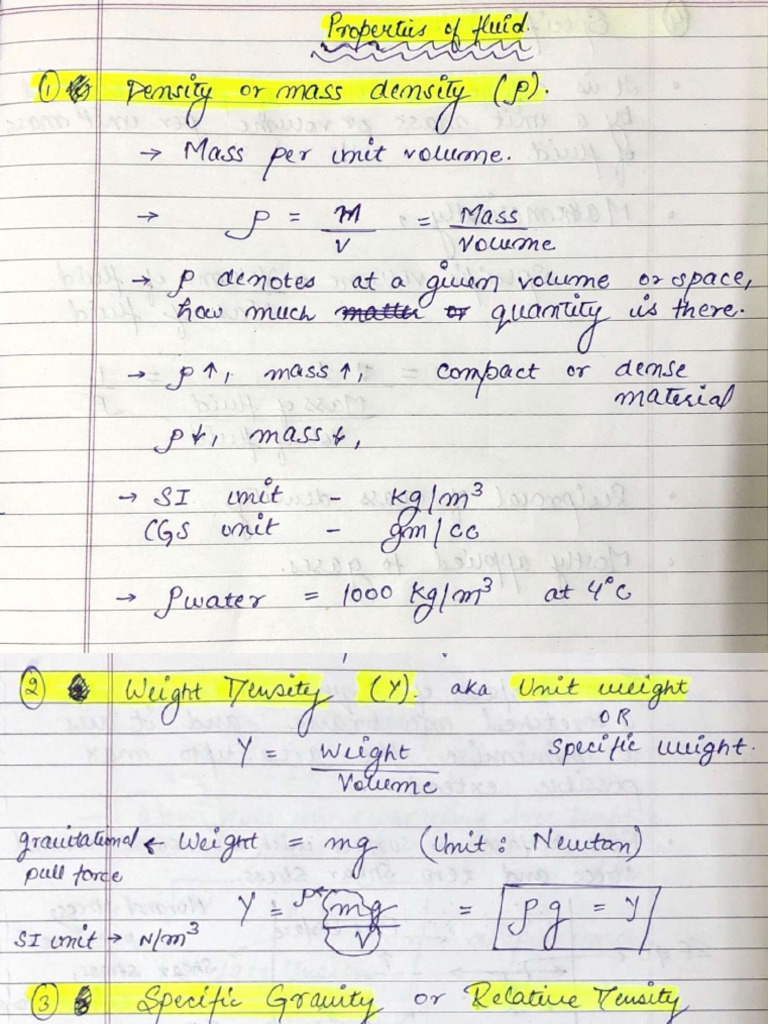 Properties of fluid.
① Density or mass density (ρ).
→ Mass per unit volume.
→ ρ = m/V = Mass/Volume
→ ρ denotes at a given volume or space,
how much matter or quantity is there.
→ ρ↑, mass↑, = compact or dense
material
ρ↓, mass↓,
→ SI unit - kg/m³
CGS unit - gm/cc
→ ρwater = 1000 kg/m³ at 4°C
② Weight Density (γ). aka Unit weight
OR
γ = Weight/Volume specific weight.
gravitational ← Weight = mg (Unit: Newton)
pull force
γ = ρ← mg/V = ρg = γ
SI unit → N/m³
③ Specific Gravity or Relative Density